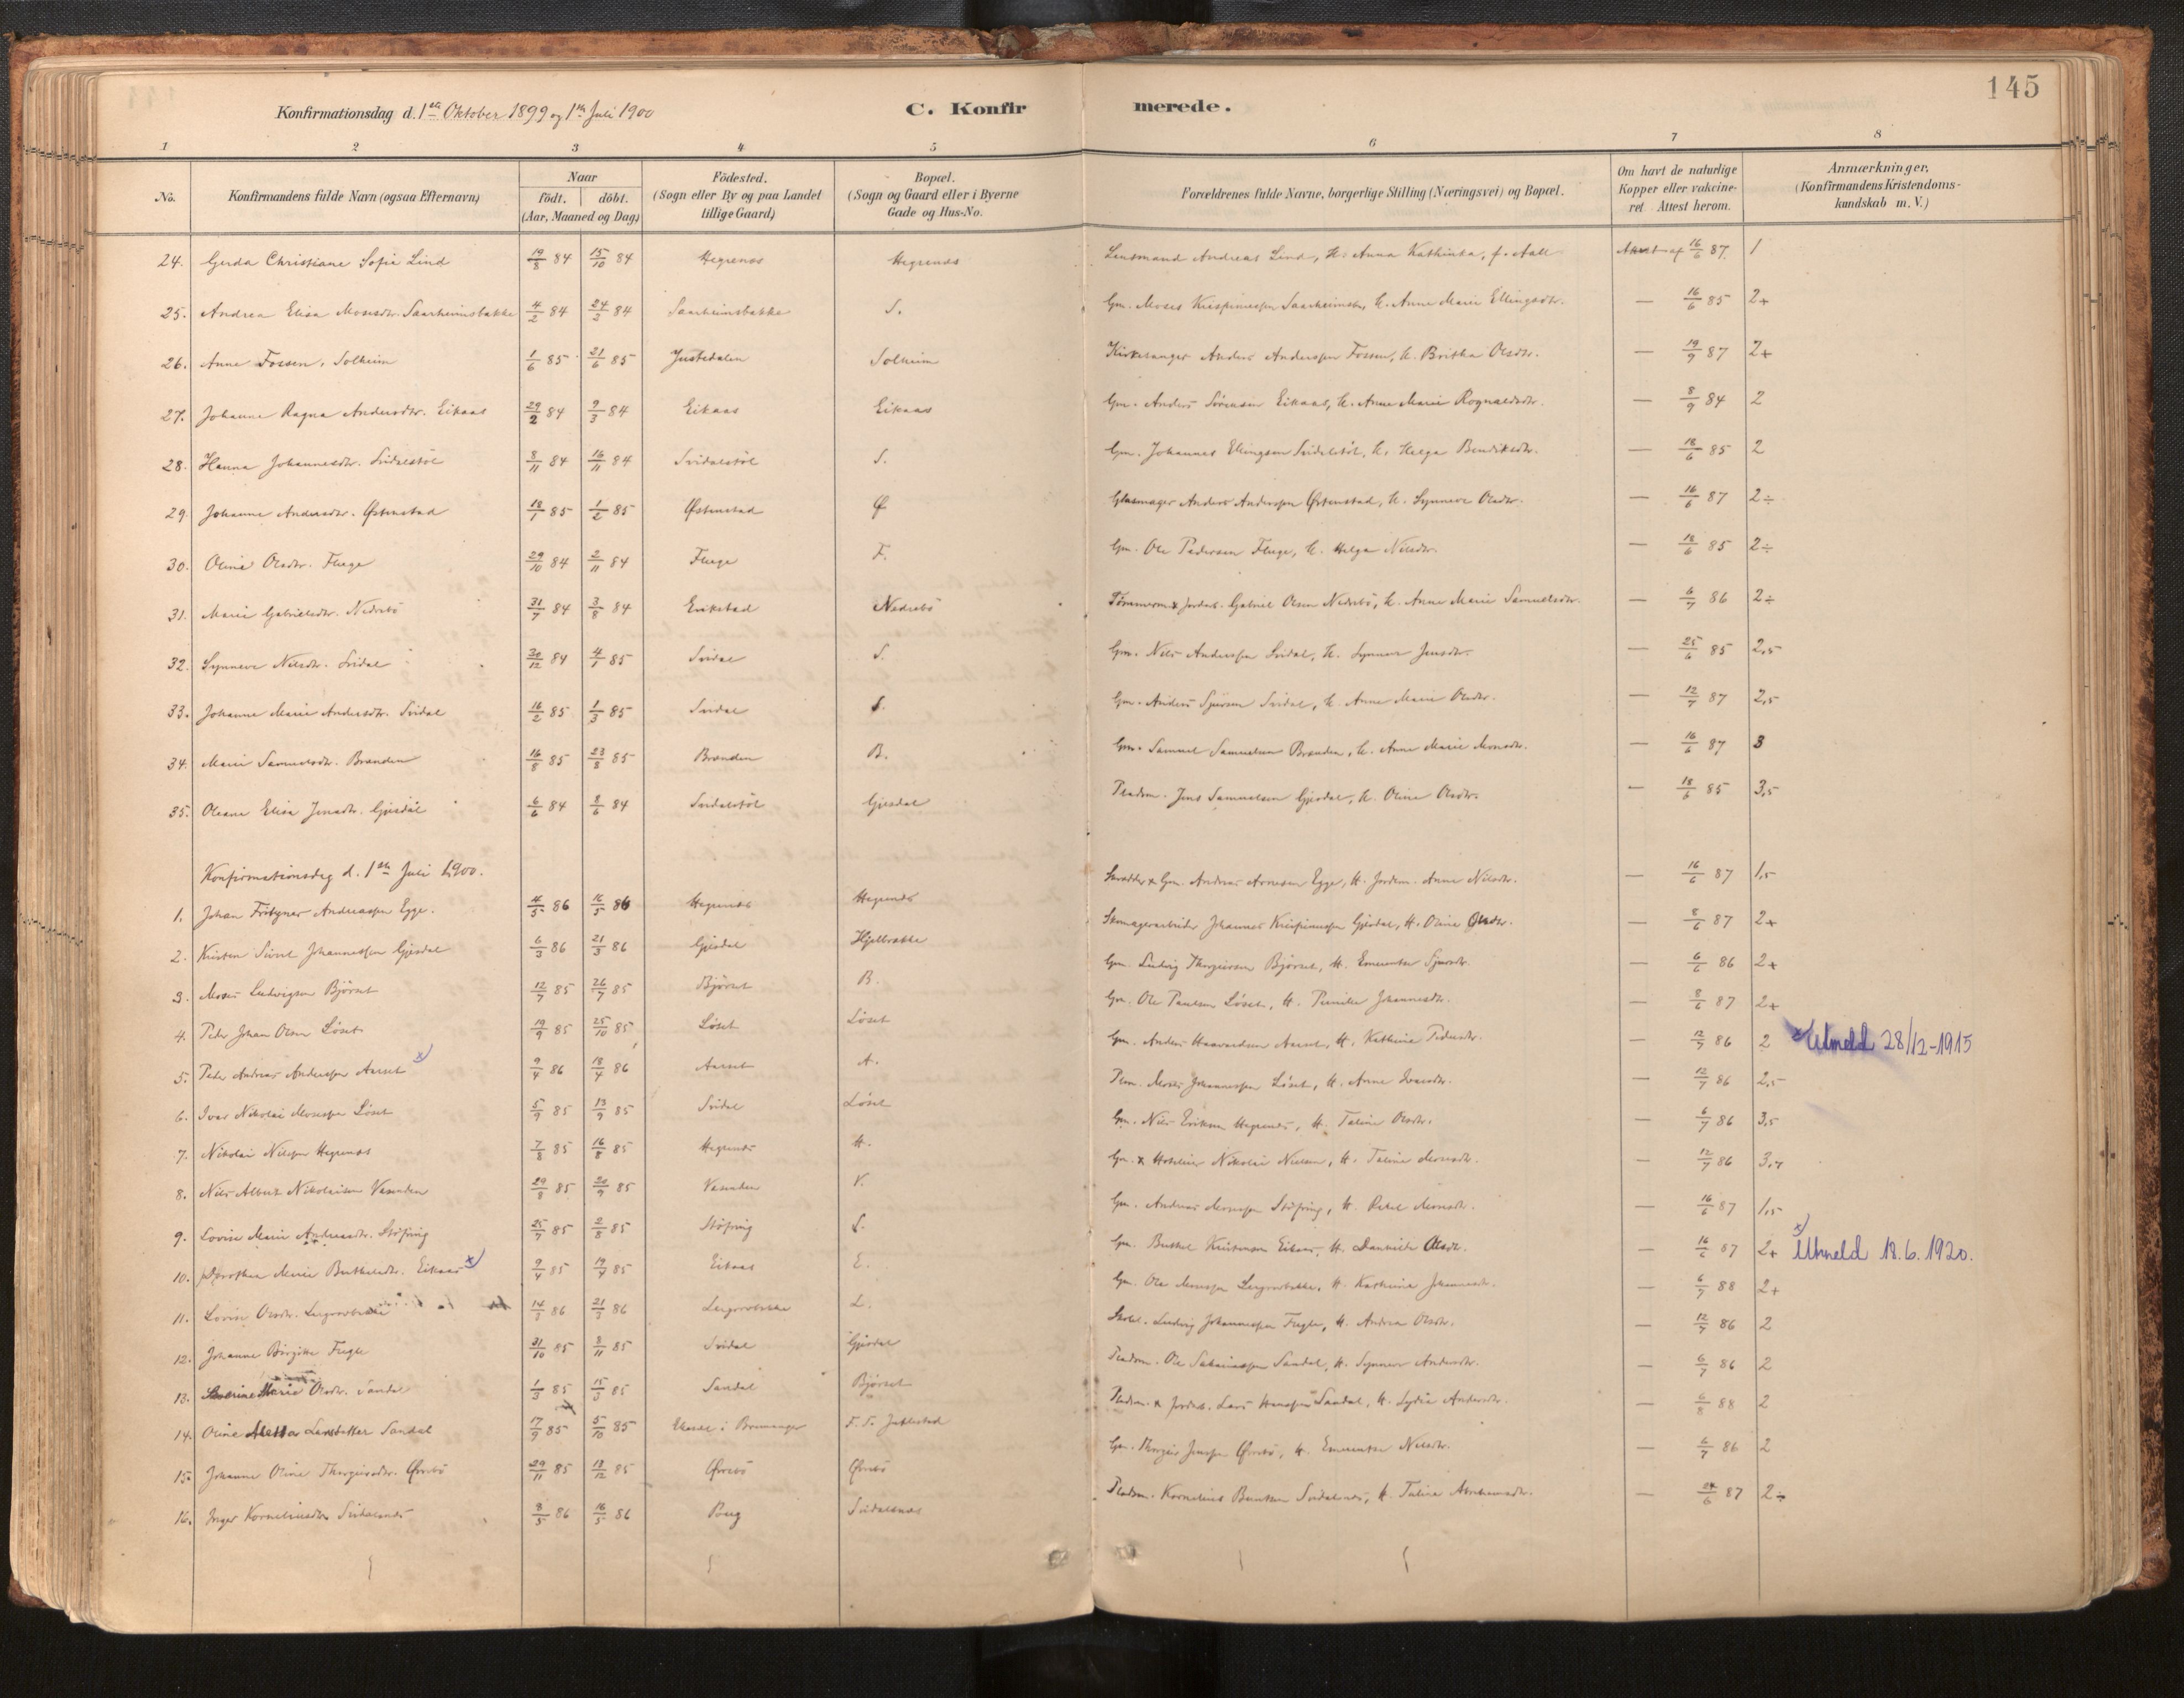 145
Konfirmationsdag d. 1ste Oktober 1899 og 1ste Juli 1900
C. Konfirmerede.
1 2 3 4 5 6 7 8
No. | Konfirmandens fulde Navn (ogsaa Efternavn) | Naar födt. döbt. (Aar, Maaned og Dag) | Födested. (Sogn eller By og paa Landet tillige Gaard) | Bopæl. (Sogn og Gaard eller i Byerne Gade og Hus-No. | Forældrenes fulde Navne, borgerlige Stilling (Næringsvei) og Bopæl. | Om havt de naturlige Kopper eller vakcineret. Attest herom. | Anmærkninger. (Konfirmandens Kristendomskundskab m. V.)
24. Gerda Christiane Sofie Lind 19/8 84 15/10 84 Hegrenæs Hegrenæs Lensmand Andreas Lind, H. Anna Kathinka, f. Aall Attest af 16/6 87 1
25. Andrea Elisa Mosesdtr. Saarheimsbakke 4/2 84 24/3 84 Saarheimsbakke S. Gm. Moses Krispinussen Saarheimsb., H. Anne Marie Ellingsdtr. — 16/6 85 2+
26. Anne Fossen, Solheim 1/6 85 21/6 85 Justedalen Solheim Kirkesanger Anders Anderssen Fossen, H. Britha Olsdtr. — 19/9 87 2+
27. Johanne Ragna Andersdtr. Eikaas 29/2 84 9/3 84 Eikaas Eikaas Gm. Anders Sørensen Eikaas, H. Anne Marie Rognaldsdtr. — 8/9 84 2
28. Hanna Johannesdtr. Svidalstøl 8/11 84 16/11 84 Svidalstøl S. Gm. Johannes Ellingsen Svidalstøl, H. Helga Bendiksdtr. — 18/6 85 2
29. Johanne Andersdtr. Østenstad 18/1 85 1/2 85 Østenstad Ø Glasmager Anders Anderssen Østenstad, H. Synneve Olsdtr. — 16/6 87 2÷
30. Oline Olsdtr. Fluge 29/10 84 2/11 84 Fluge F. Gm. Ole Pedersen Fluge, H. Helga Nilsdtr. — 18/6 85 2÷
31. Marie Gabrielsdtr. Nedrebø 31/7 84 3/8 84 Erikstad Nedrebø Tømmerm. & Jordb. Gabriel Olsen Nedrebø, H. Anne Marie Samuelsdtr. — 6/7 86 2÷
32. Synneve Nilsdtr. Svidal 30/12 84 4/1 85 Svidal S. Gm. Nils Anderssen Svidal, H. Synneve Jensdtr. — 25/6 85 2,5
33. Johanne Marie Andersdtr. Svidal 16/2 85 1/3 85 Svidal S. Gm. Anders Sjursen Svidal, H. Anne Marie Olsdtr. — 12/7 87 2,5
34. Marie Samuelsdtr. Brænden 16/8 85 23/8 85 Brænden B. Gm. Samuel Samuelsen Brænden, H. Anne Marie Monsdtr. — 16/6 87 3
35. Oleane Elisa Jensdtr. Gjesdal 6/6 84 8/6 84 Svidalstøl Gjesdal Pladsm. Jens Samuelsen Gjesdal, H. Oline Olsdtr. — 18/6 85 3,5
Konfirmationsdag d. 1ste Juli 1900.
1. Johan Frityner Andreassen Egge. 4/5 86 16/5 86 Hegrenæs Hegrenæs Skrædder & Gm. Andreas Arnesen Egge, H. Jordem. Anne Nilsdtr. — 16/6 87 1,5
2. Kristen Sivert Johannessen Gjesdal 6/3 86 21/3 86 Gjesdal Hjelbrække Skomagerarbeider Johannes Krispinussen Gjesdal, H. Oline Olsdtr. — 8/6 87 2+
3. Moses Ludvigsen Bjørset 12/7 85 26/7 85 Bjørset B. Gm. Ludvig Thorgeirsen Bjørset, H. Emerentse Sjursdtr. — 6/6 86 2+
4. Peder Johan Olsen Løset 19/9 85 25/10 85 Løset Løset Gm. Ole Paulsen Løset, H. Pernille Johannesdtr. — 8/6 87 2+
5. Peder Andreas Anderssen Aarset x) 9/4 86 18/4 86 Aarset A. Gm. Anders Haavardsen Aarset, H. Kathrine Pedersdtr. — 12/7 86 2 x) Utmeld 28/12-1915
6. Ivar Nikolai Mosessen Løset 5/9 85 13/9 85 Svidal Løset Plm. Moses Johannessen Løset, H. Anne Ivarsdtr. — 12/7 86 2,5
7. Nikolai Nilssen Hegrenæs 7/8 85 16/8 85 Hegrenæs H. Gm. Nils Eriksen Hegrenæs, H. Taline Olsdtr. — 6/7 86 3,5
8. Nils Albert Nikolaisen Vasenden 29/8 85 20/9 85 Vasenden V. Gm. & Hotelier Nikolai Nielsen, H. Taline Mosesdtr. — 12/7 86
9. Lovise Marie Andreasdtr. Støfring 25/7 85 2/8 85 Støfring S. Gm. Andreas Monssen Støfring, H. Rakel Monsdtr. — 16/6 87 1,5
10. Dorothea Marie Berthelsdtr. Eikaas x) 9/4 85 19/4 85 Eikaas E. Gm. Berthel Kristensen Eikaas, H. Danielle Olsdtr. — 16/6 87 2+ x) Utmeld 18.6.1920.
11. Lovise Olsdtr. Legrovbakke 14/3 86 21/3 86 Legrovbakke L. Gm. Ole Monssen Legrovbakke, H. Kathrine Johannesdtr. — 6/7 88 2+
12. Johanne Birgitte Fugle 31/10 85 8/11 85 Svidal Gjesdal Skolel. Ludvig Johannessen Fugle, H. Andrea Olsdtr. — 12/7 86 2
13. Severine Marie Olsdtr. Sandal 1/3 85 15/3 85 Sandal Bjørset Pladsm. Ole Sakariassen Sandal, H. Synneve Andersdtr. — 6/7 86 2
14. Oline Aletta Larsdatter Sandal 17/9 85 5/10 85 i Bremanger Pladsm. & Jordarb. Lars Hanssen Sandal, H. Lydia Andersdtr. — 6/8 88 2
15. Johanne Oline Thorgeirsdtr. Øvrebø 29/11 85 13/12 85 Øvrebø Øvrebø Gm. Thorgeir Jenssen Øvrebø, H. Emerentse Nilsdtr. — 6/7 86 2
16. Inger Korneliusdtr. Svidalsnæs 8/5 86 16/5 86 Svidalsnæs Pladsm. Kornelius Bentsen Svidalsnæs, H. Taline Abrahamsdtr. — 87 2÷